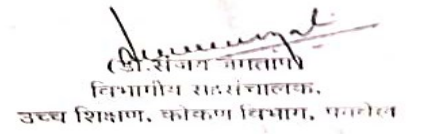 (डॉ.संजय जगताप)
विभागीय सहसंचालक,
उच्च शिक्षण, कोकण विभाग, पनवेल